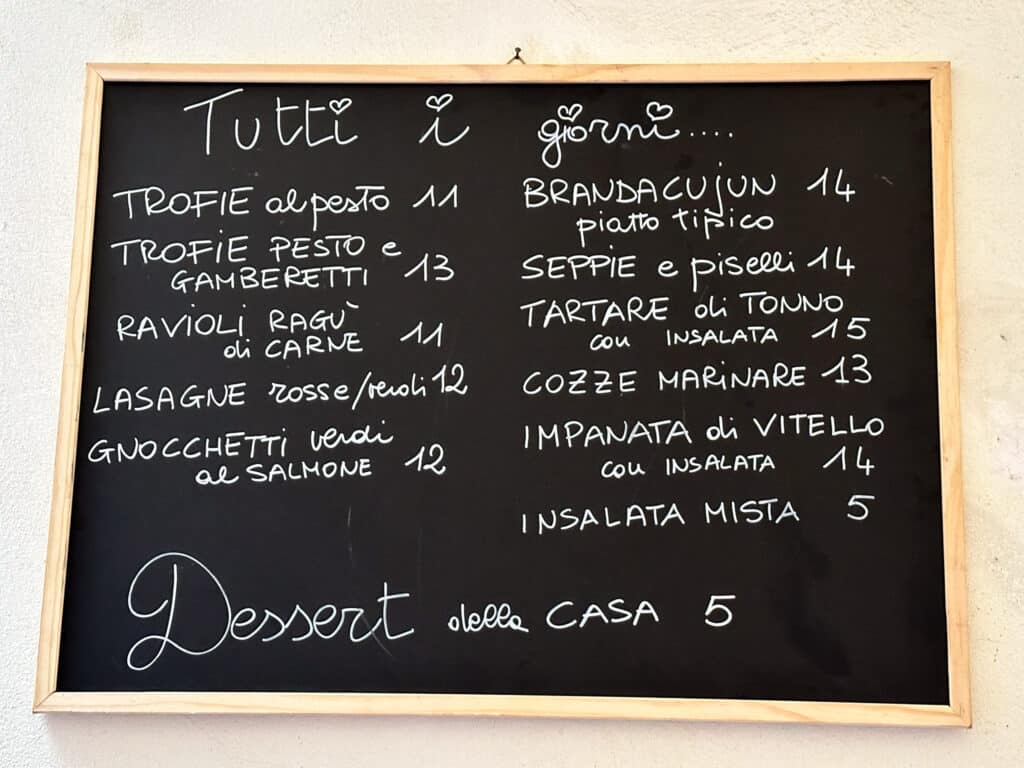 Tutti i giorni....
TROFIE al pesto 11
TROFIE PESTO e
GAMBERETTI 13
RAVIOLI RAGÙ
di CARNE 11
LASAGNE rosse/verdi 12
GNOCCHETTI verdi
al SALMONE 12
BRANDACUJUN 14
piatto tipico
SEPPIE e piselli 14
TARTARE di TONNO
con INSALATA 15
COZZE MARINARE 13
IMPANATA di VITELLO
con INSALATA 14
INSALATA MISTA 5
Dessert della CASA 5